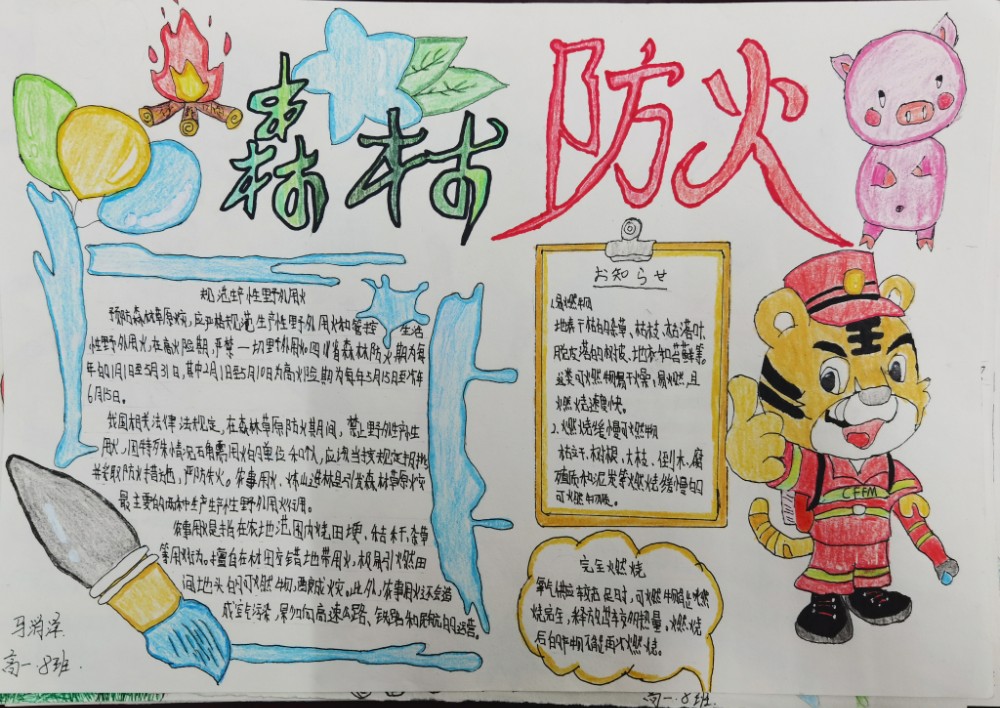 森林防火
规范生产性野外用火
预防森林草原火灾，应严格规范生产性野外用火和管控生活
性野外用火，在高火险期，严禁一切野外用火。四川省森林防火期为每
年的1月1日至5月31日，其中2月1日至5月10日为高火险期为每年3月15日至次年
6月15日。
我国相关法律法规定，在森林草原防火期间，禁止野外生产生
用火，因特殊情况确需用火的单位和个人，应该当按规定报批
并采取防火措施，严防失火。农事用火、林山进林是引发森林草原火灾
最主要的两种生产生产性野外用火行为。
农事用火是指在农地范围内烧田埂、秸秆、杂草
等用火行为。擅自在林田交错地带用火，极易引燃田
间地头的可燃物，酿成火灾。此外，农事用火还会造
成空气污染，影响高速公路、铁路和民航的运营。
お知らせ
1.易燃物
地表干枯的杂草、枯枝、枯落叶
脱皮落的树皮、地衣和苔藓等。
这类可燃物易干燥，易燃，且
燃烧速度快。
2、燃烧缓慢可燃物
枯立干、树根、大枝、倒木、腐
殖质和泥炭等燃烧缓慢的
可燃物质。
完全燃烧
氧气供应较充足时，可燃物质燃
烧完全，释放出较多的热量。燃烧
后的产物不能再次燃烧。
王
CFFM
高一.8班.
高一.8班.